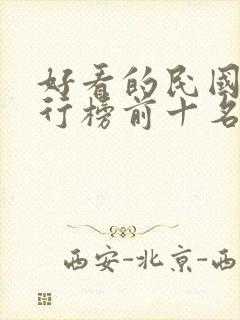 好看的民国
行榜前十名
西安-北京-西